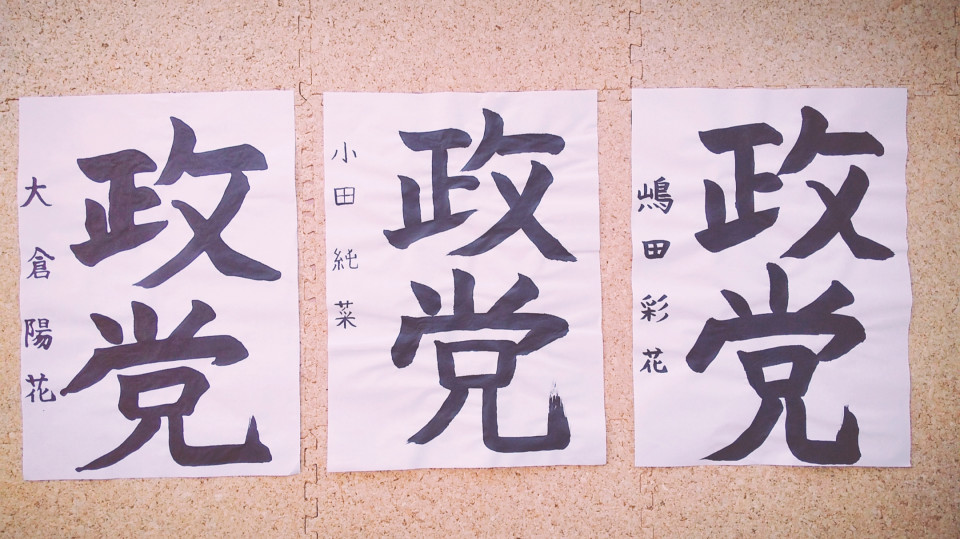 政党
大倉陽花
政党
小田純菜
政党
嶋田彩花